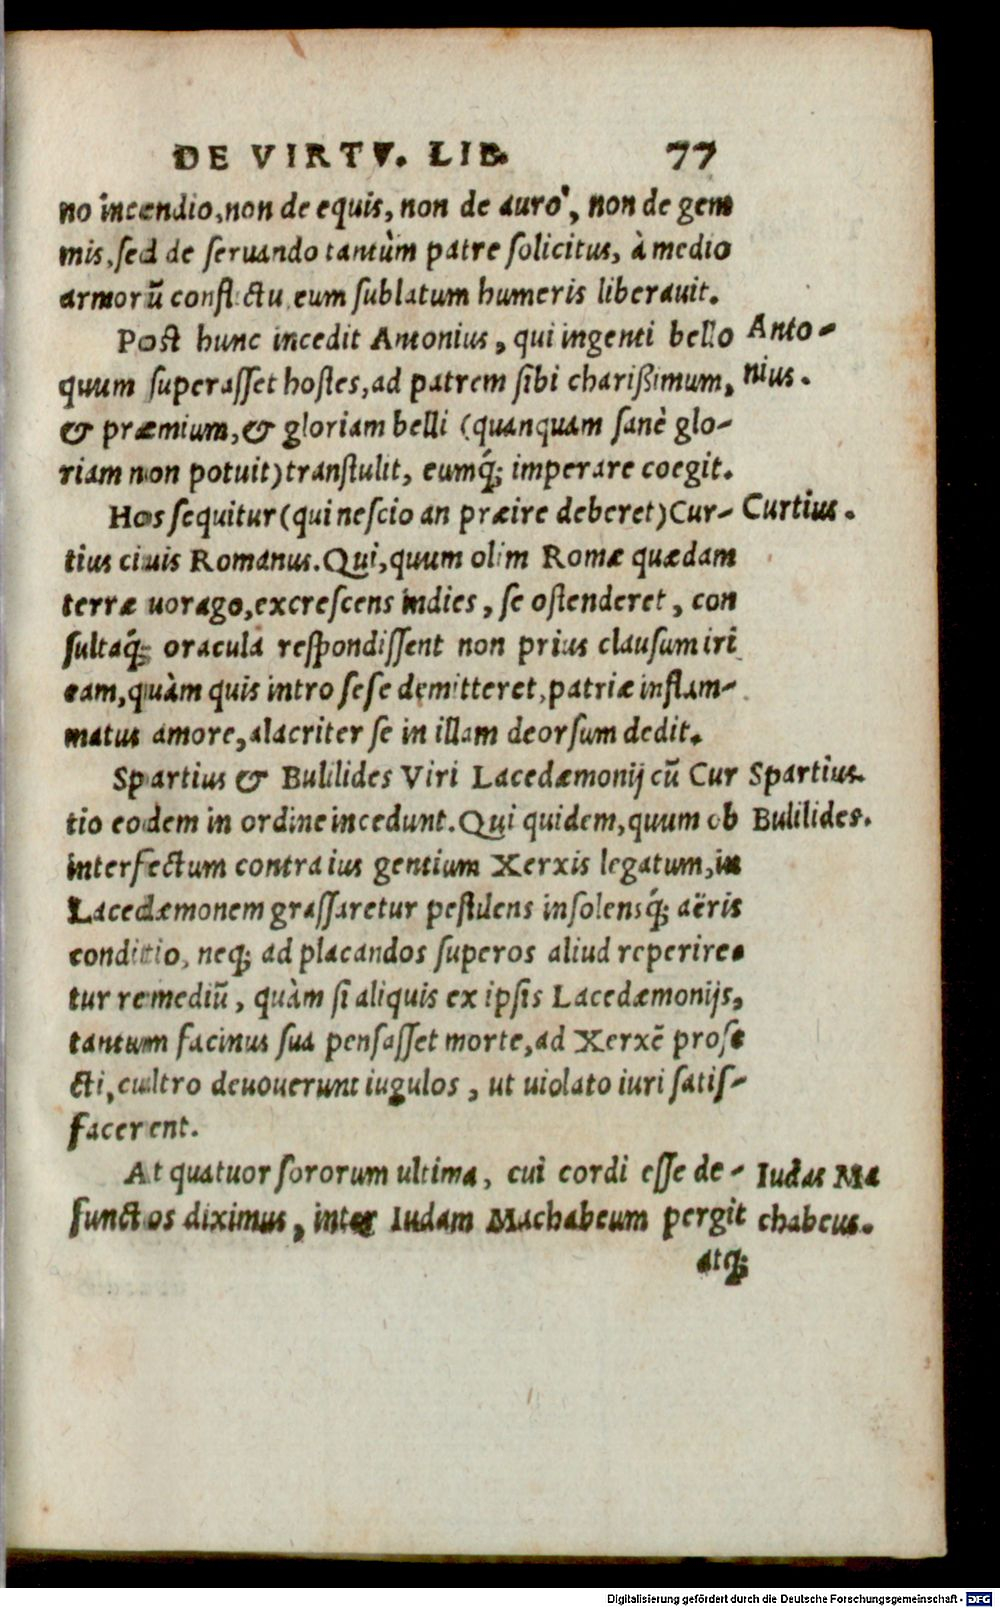 DE VIRTV. LIB. 77
no incendio, non de equis, non de auro, non de gem
mis, sed de seruando tantùm patre solicitus, à medio
armorū conflictu eum sublatum humeris liberauit.
Post hunc incedit Antonius, qui ingenti bello Anto-
quum superasset hostes, ad patrem sibi charißimum, nius.
& præmium, & gloriam belli (quanquam sanè glo-
riam non potuit) transtulit, eumq́; imperare coegit.
Hos sequitur (qui nescio an præire deberet) Cur- Curtius.
tius ciuis Romanus. Qui, quum olim Romæ quædam
terræ uorago, excrescens indies, se ostenderet, con
sultaq́; oracula respondissent non prius clausum iri
eam, quàm quis intro sese demitteret, patriæ inflam-
matus amore, alacriter se in illam deorsum dedit.
Spartius & Bulilides Viri Lacedæmonij cū Cur Spartius.
tio eodem in ordine incedunt. Qui quidem, quum ob Bulilides.
interfectum contra ius gentium Xerxis legatum, in
Lacedæmonem grassaretur pestilens insolensq́; aëris
conditio, neq; ad placandos superos aliud reperire-
tur remediū, quàm si aliquis ex ipsis Lacedæmonijs,
tantum facinus sua pensasset morte, ad Xerxē profe
cti, cultro deuouerunt iugulos, ut uiolato iuri satis-
facerent.
At quatuor sororum ultima, cui cordi esse de- Iudas Ma
functos diximus, inter Iudam Machabeum pergit chabeus.
atq;
Digitalisierung gefördert durch die Deutsche Forschungsgemeinschaft - DFG